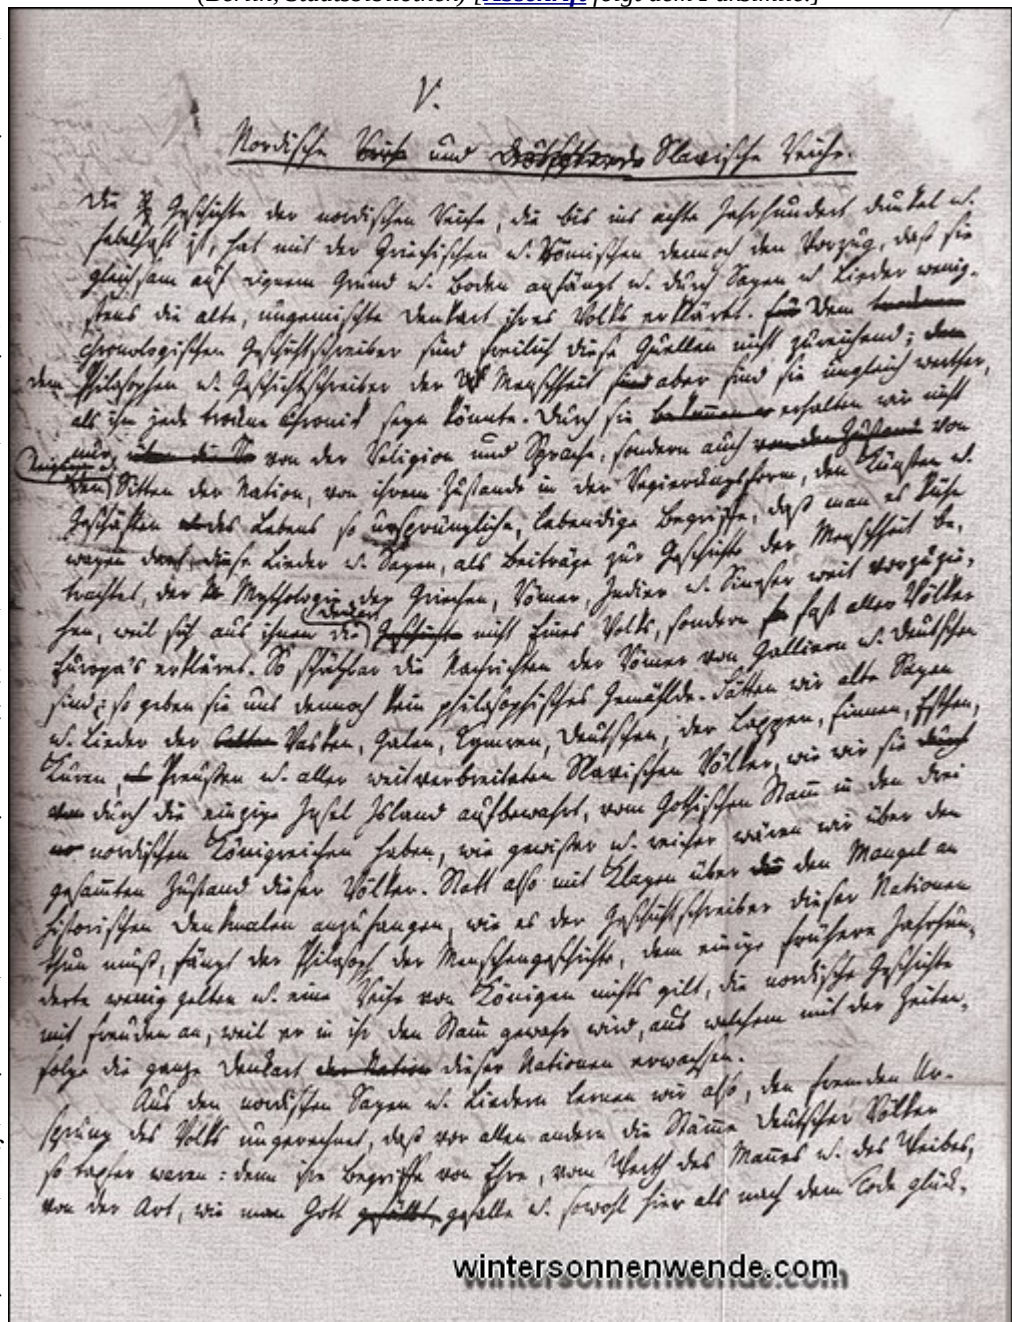 (Berlin, Staatsbibliothek) [Abschrift folgt dem Faksimile.]
V.
Nordische Reiche und Slavische Reiche.
Die Geschichte der nordischen Reiche, die bis ins achte Jahrhundert dunkel u.
fabelhaft ist, hat mit der Griechischen u. Römischen dennoch den Vorzug, daß sie
gleichsam auf eignem Grund u. Boden anfängt u. durch Sagen u. Lieder wenig-
stens die alte, ungemischte Denkart ihres Volks erkläret. Dem trocknen
chronologischen Geschichtschreiber sind freilich diese Quellen nicht zureichend; dem
dem Philosophen u. Geschichtschreiber der Menschheit sind aber sind sie ungleich werther,
als ihm jede trockne Chronik seyn könnte. Durch sie bekommen erhalten wir nicht
nur, über die von der Religion und Sprache, sondern auch von dem Zustande von
den Sitten der Nation, von ihrem Zustande in der Regierungsform, den Künsten u.
Geschäften des Lebens so ursprüngliche, lebendige Begriffe, daß man es kühn
wagen darf, diese Lieder u. Sagen, als Beiträge zur Geschichte der Menschheit be-
trachtet, der Mythologie der Griechen, Römer, Indier u. Sineser weit vorzuzie-
hen, weil sich aus ihnen die Geschichte nicht Eines Volks, sondern fast aller Völker
Europa's erkläret. So schätzbar die Nachrichten der Römer von Galliern u. Deutschen
sind; so geben sie uns dennoch kein philosophisches Gemählde. Hätten wir alte Sagen
u. Lieder der Celten Vasken, Galen, Kymren, Deutschen, der Lappen, Finnen, Esthen,
Kuren, Preußen u. aller weitverbreiteten Slavischen Völker, wie wir sie durch
von durch die einzige Insel Island aufbewahrt, vom Gothischen Stamm in den drei
nordischen Königreichen haben, wie gewisser u. reicher wären wir über den
gesammten Zustand dieser Völker. Statt also mit Klagen über die den Mangel an
historischen Denkmalen anzufangen, wie es der Geschichtschreiber dieser Nationen
thun muß, fängt der Philosoph der Menschengeschichte, dem einige frühere Jahrhun-
derte wenig gelten u. eine Reihe von Königen nichts gilt, die nordische Geschichte
mit Freuden an, weil er in ihr den Stamm gewahr wird, aus welchem mit der Zeiten-
folge die ganze Denkart der Nation dieser Nationen erwachsen.
Aus den nordischen Sagen u. Liedern lernen wir also, den fremden Ur-
sprung des Volks ungerechnet, daß vor allen andern die Stämme Deutscher Völker
so tapfer waren: denn ihre Begriffe von Ehre, vom Werth des Mannes u. des Weibes,
von der Art, wie man Gott gefällt, gefalle u. sowohl hier als nach dem Tode glück-
wintersonnenwende.com